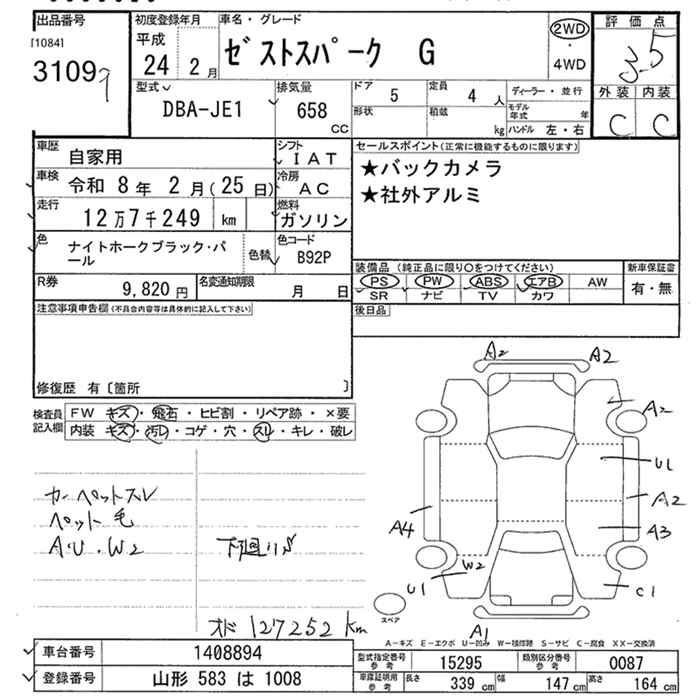 出品番号
[1084]
3109
初度登録年月
平成
24 2月
車名・グレード
ゼストスパーク G
2WD
・
4WD
評価点
3.5
外装 内装
C C
型式
DBA-JE1
排気量
658
CC
ドア 5
定員 4 人
形状
積載 kg
ディーラー・並行
モデル年式 年
ハンドル 左・右
車歴 自家用
シフト IAT
車検 令和 8年 2月(25日)
冷房 AC
走行 12万7千249 km
燃料 ガソリン
色 ナイトホークブラック・パール
色替
色コード B92P
R券 9,820円
名変通知期限 月 日
セールスポイント(正常に機能するものに限ります)
★バックカメラ
★社外アルミ
装備品(純正品に限り○をつけてください)
PS PW ABS エアB AW
SR ナビ TV カワ
新車保証書
有・無
後日品
注意事項申告欄(不具合内容等は具体的に記入して下さい)
修復歴 有〔箇所 〕
検査員記入欄
FW キズ・飛石・ヒビ割・リペア跡・×要
内装 キズ・汚レ・コゲ・穴・スレ・キレ・破レ
カーペットスレ
ペット毛
A・U・W2
下廻リS
オド 127252 km
A2
A2
A2
U1
A2
A3
A4
W2
U1
C1
A1
スペア
A-キズ E-エクボ U-凹み W-補修跡 S-サビ C-腐食 XX-交換済
車台番号 1408894
登録番号 山形 583 は 1008
型式指定番号 参考 15295
類別区分番号 参考 0087
車庫証明用 参考 長さ 339 cm 幅 147 cm 高さ 164 cm